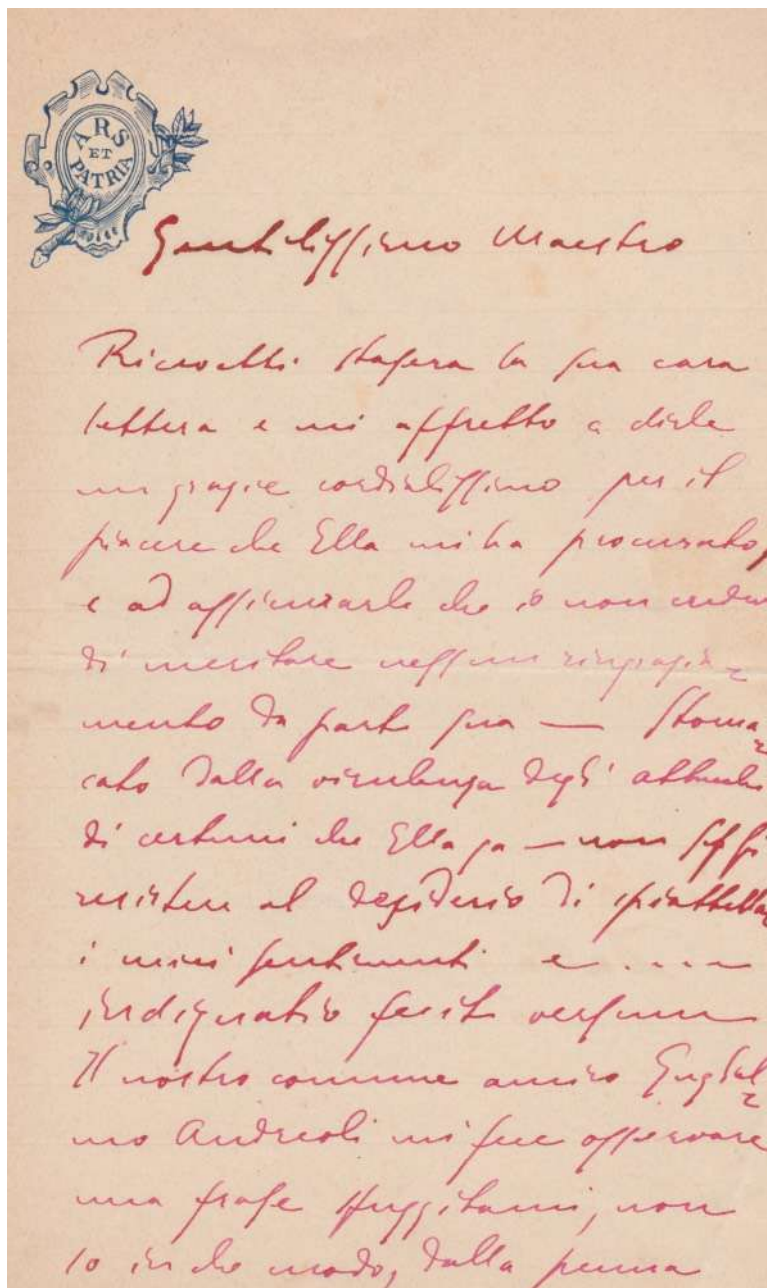 ARS
ET
PATRIA
Gentilissimo Maestro
Ricevetti stasera la sua cara
lettera e mi affretto a dirle
un grazie cordialissimo per il
piacere che Ella mi ha procurato,
e ad assicurarle che io non credevo
di meritare nessun ringrazia=
mento da parte sua — Stoma=
cato dalla virulenza degli attacchi
di certuni che Ella sa — non seppi
resistere al desiderio di spiattellare
i miei sentimenti e ....
indignatio fecit versum
Il nostro comune amico Guglel=
mo Andreoli mi fece osservare
una frase sfuggitami, non
so in che modo, dalla penna